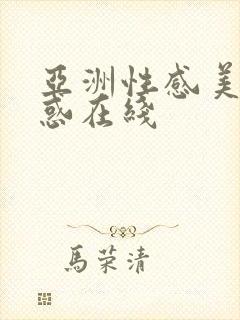 亞洲性感美
惑在綫
馬荣清